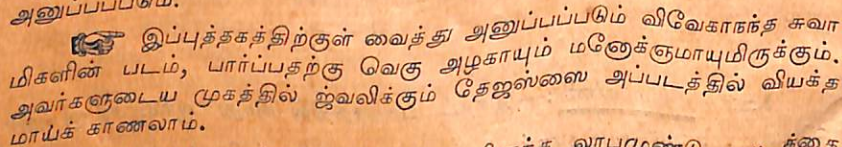 அனுப்பப்படும்.
☞ இப்புத்தகத்திற்குள் வைத்து அனுப்பப்படும் விவேகாநந்த சுவா
மிகளின் படம், பார்ப்பதற்கு வெகு அழகாயும் மனோக்ஞமாயுமிருக்கும்.
அவர்களுடைய முகத்தில் ஜ்வலிக்கும் தேஜஸ்ஸை அப்படத்தில் வியக்த
மாய்க் காணலாம்.